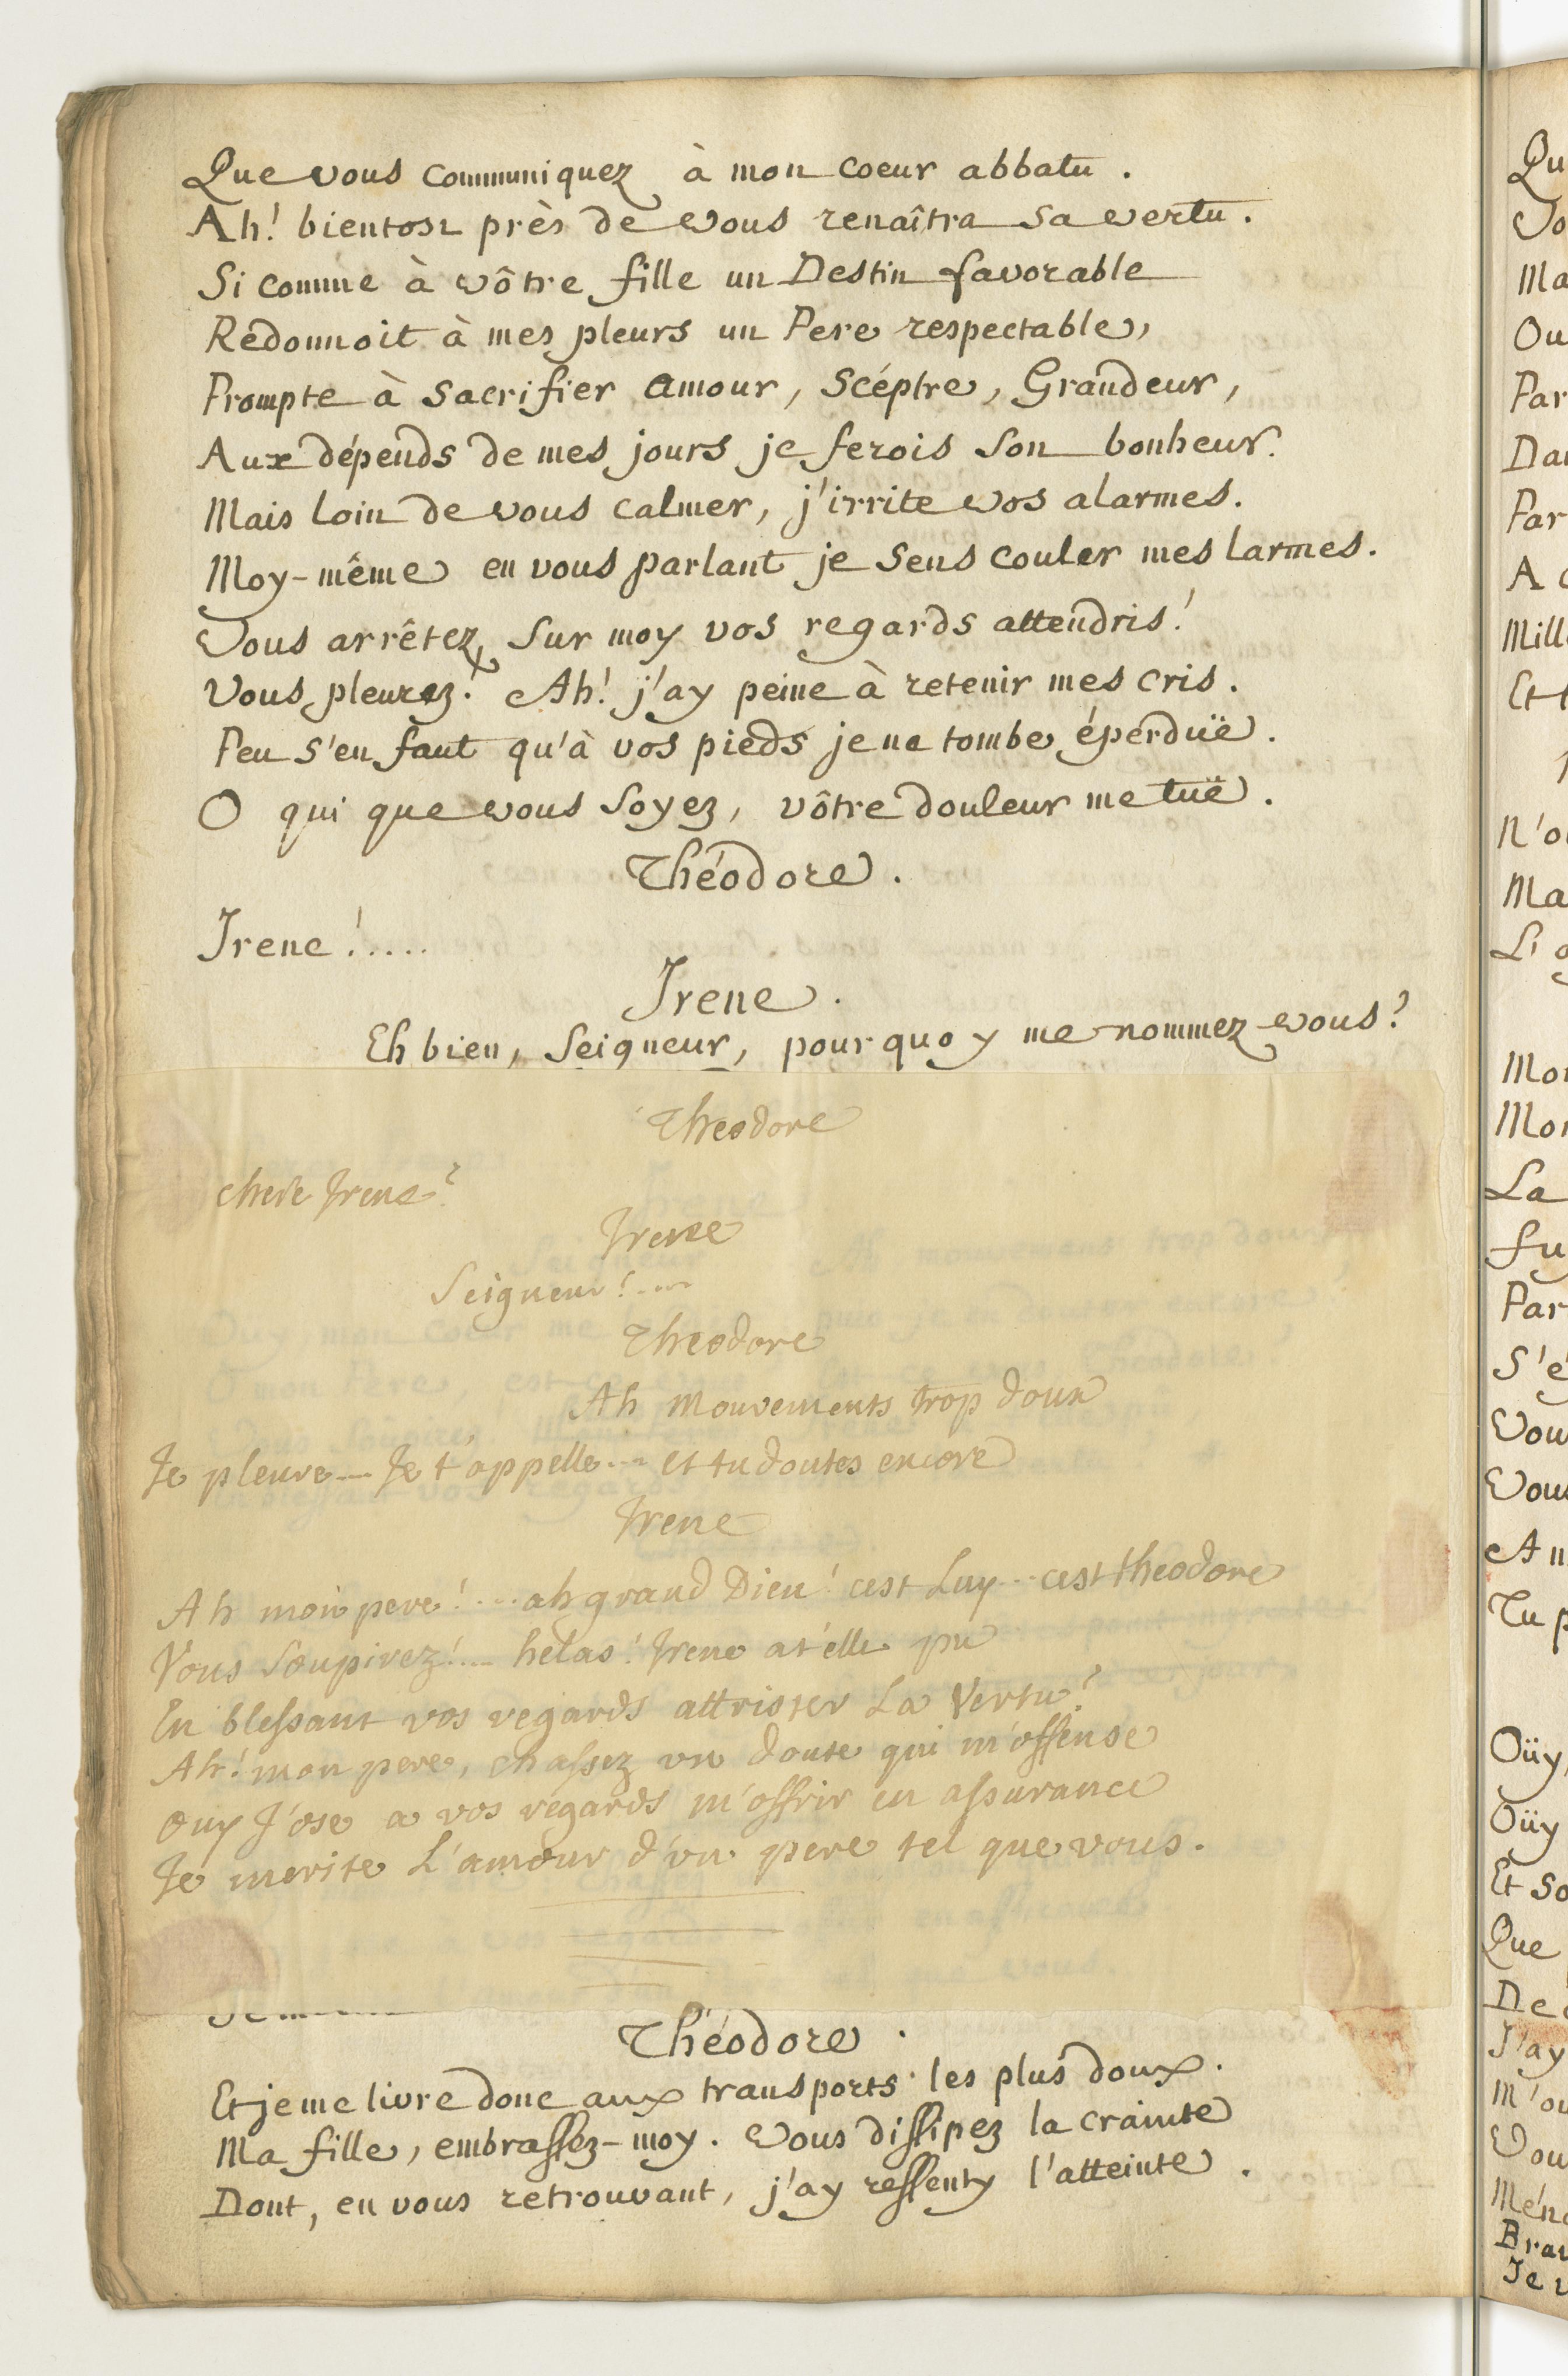 Que vous communiquez à mon coeur abbatu.
Ah! bientost près de vous renaîtra sa vertu.
Si comme à vôtre fille un Destin favorable
Redonnoit à mes pleurs un Pere respectable,
Prompte à sacrifier amour, Scéptre, Grandeur,
Aux dépends de mes jours je ferois son bonheur.
Mais loin de vous calmer, j'irrite vos alarmes.
Moy-même en vous parlant je sens couler mes larmes.
Vous arrêtez sur moy vos regards attendris!
Vous pleurez! Ah! j'ay peine à retenir mes cris.
Peu s'en faut qu'à vos pieds je ne tombe éperduë.
O qui que vous soyez, vôtre douleur me tuë.
Théodore.
Irene!.....
Irene.
Eh bien, Seigneur, pourquoy me nommez-vous?
Theodore
chere Irene?
Irene
Seigneur!....
Theodore
Ah mouvements trop doux
Je pleure... Je t'appelle... et tu doutes encore
Irene
Ah mon pere!....ah grand Dieu! cest Luy... cest theodore
Vous soupirez!.... helas! Irene at'elle pu
En blessant vos regards attrister La Vertu?
Ah! mon pere, chassez un doute qui m'offense
ouy J'ose a vos regards m'offrir en assurance
Je merite L'amour d'un pere tel que vous.
Théodore.
Et je me livre donc aux transports les plus doux.
Ma fille, embrassez-moy. Vous dissipez la crainte
Dont, en vous retrouvant, j'ay ressenty l'atteinte.